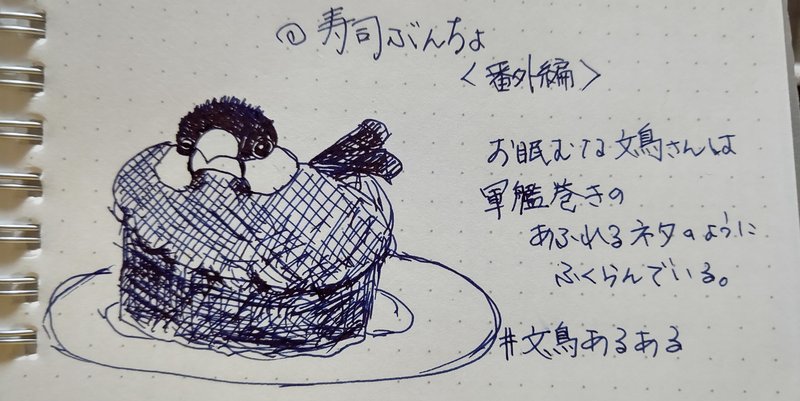 @寿司ぶんちょ
<番外編>
お眠むな文鳥さんは
軍艦巻きの
あふれるネタのように
ふくらんでいる。
#文鳥あるある